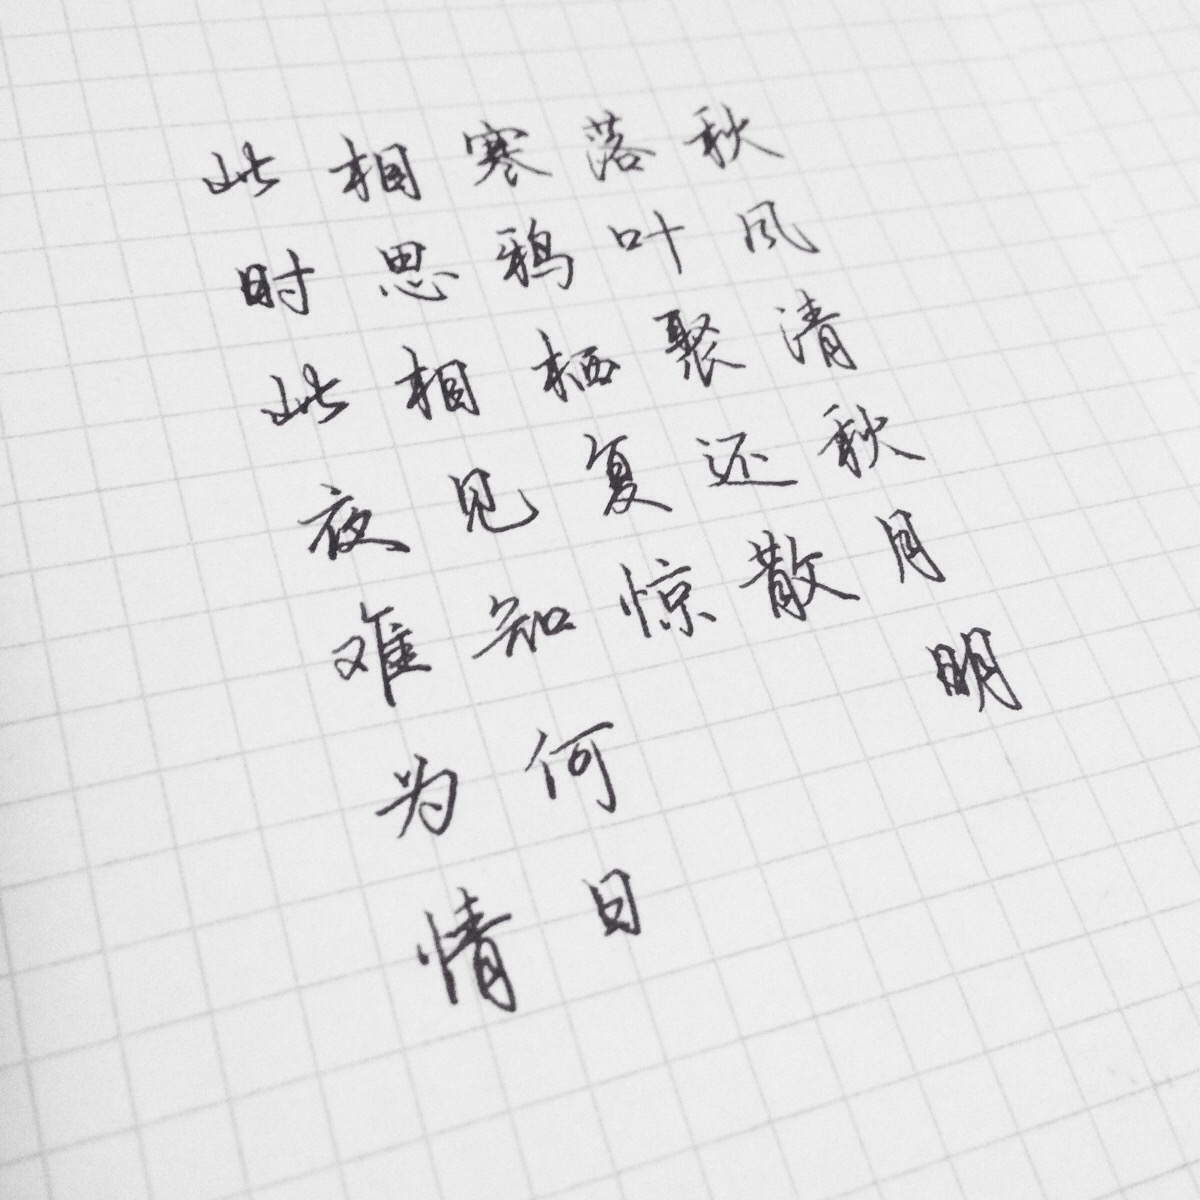 秋风清秋月明
落叶聚还散
寒鸦栖复惊
相思相见知何日
此时此夜难为情